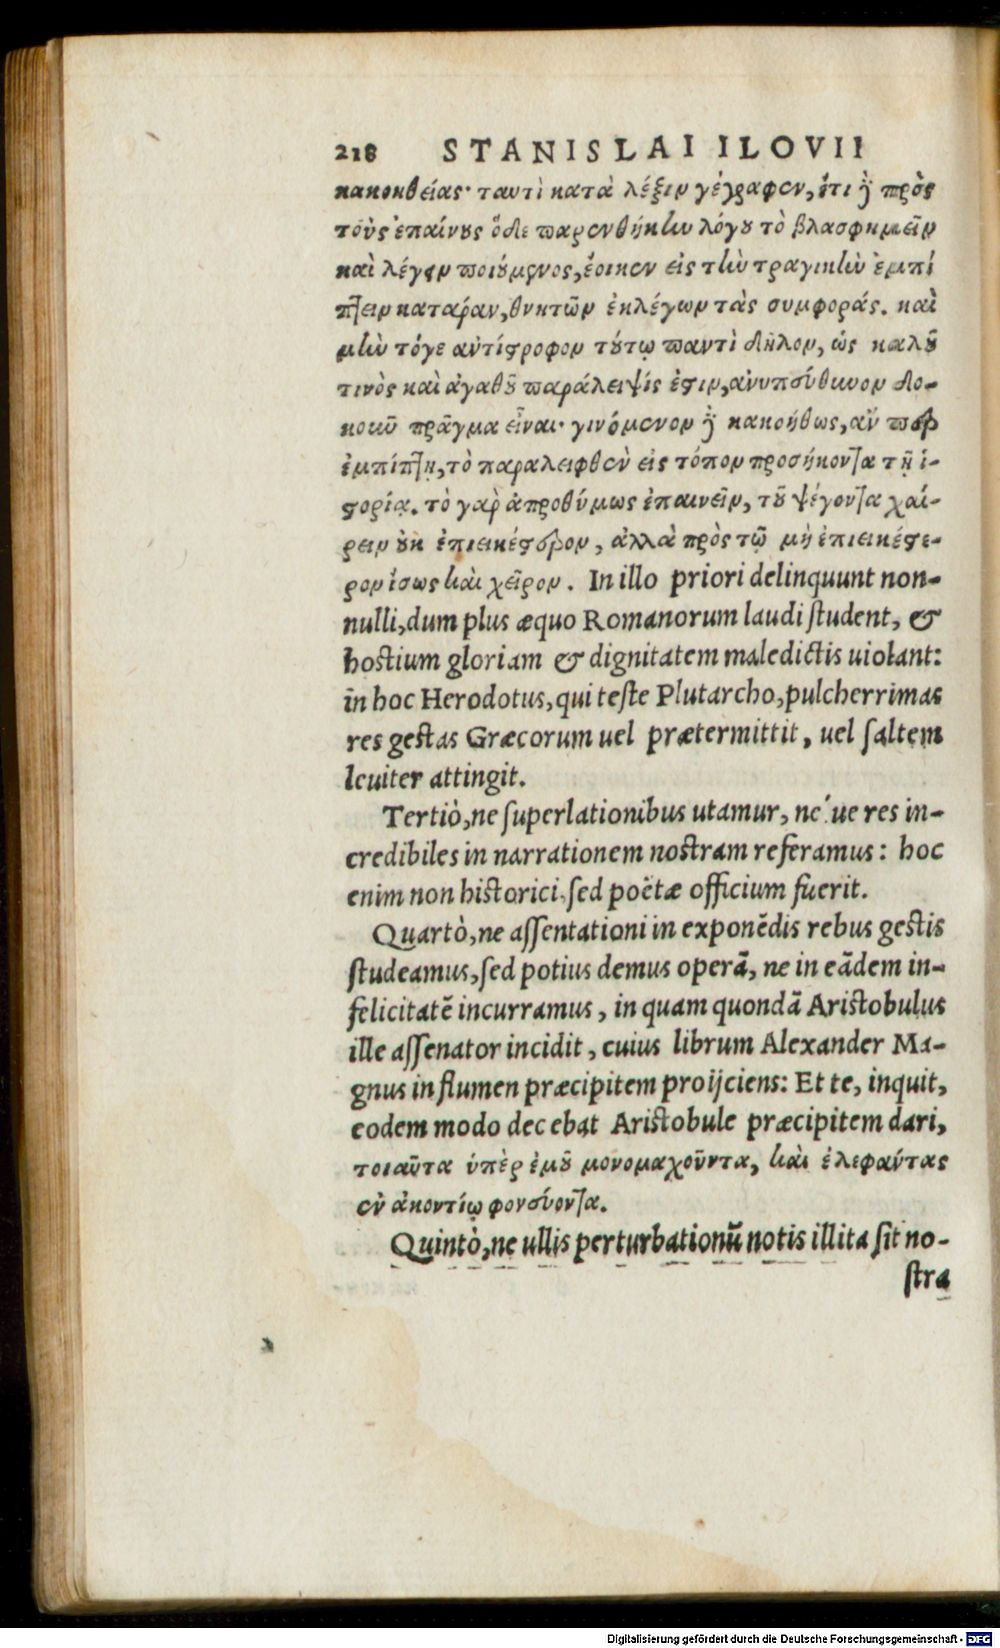 218 STANISLAI ILOVII
κακοηθείας· ταυτὶ κατὰ λέξιν γέγραφεν, ἔτι ἢ πρὸς
τοὺς ἐπαίνους ὅδε παρενθήκην λόγου τὸ βλασφημεῖν
καὶ λέγειν ποιούμενος, ἔοικεν εἰς τὴν τραγικὴν ἐμπί
πτειν κατάραν, θνητῶν ἐκλέγων τὰς συμφοράς. καὶ
μὴν τόγε ἀντίστροφον τούτῳ παντὶ δῆλον, ὡς καλοῦ
τινὸς καὶ ἀγαθοῦ παράλειψίς ἐστιν, ἀνυπεύθυνον δο-
κοῦν πρᾶγμα εἶναι· γινόμενον ἢ κακοήθως, ἄν περ
ἐμπίπτῃ, τὸ παραλειφθὲν εἰς τόπον προσήκοντα τῇ ἱ-
στορίᾳ. τὸ γὰρ ἀπροθύμως ἐπαινεῖν, τοῦ ψέγοντα χαί-
ρειν οὐκ ἐπιεικέστερον, ἀλλὰ πρὸς τῷ μὴ ἐπιεικέστε-
ρον ἴσως καὶ χεῖρον. In illo priori delinquunt non-
nulli, dum plus æquo Romanorum laudi student, &
hostium gloriam & dignitatem maledictis uiolant:
in hoc Herodotus, qui teste Plutarcho, pulcherrimas
res gestas Græcorum uel prætermittit, uel saltem
leuiter attingit.
Tertiò, ne superlationibus utamur, né ue res in-
credibiles in narrationem nostram referamus: hoc
enim non historici, sed poëtæ officium fuerit.
Quartò, ne assentationi in exponēdis rebus gestis
studeamus, sed potius demus operā, ne in eādem in-
felicitatē incurramus, in quam quondā Aristobulus
ille assenator incidit, cuius librum Alexander Ma-
gnus in flumen præcipitem proijciens: Et te, inquit,
eodem modo decebat Aristobule præcipitem dari,
τοιαῦτα ὑπὲρ ἐμοῦ μονομαχοῦντα, καὶ ἐλεφάντας
ἐν ἀκοντίῳ φονεύοντα.
Quintò, ne ullis perturbationū notis illita sit no-
stra
Digitalisierung gefördert durch die Deutsche Forschungsgemeinschaft - DFG